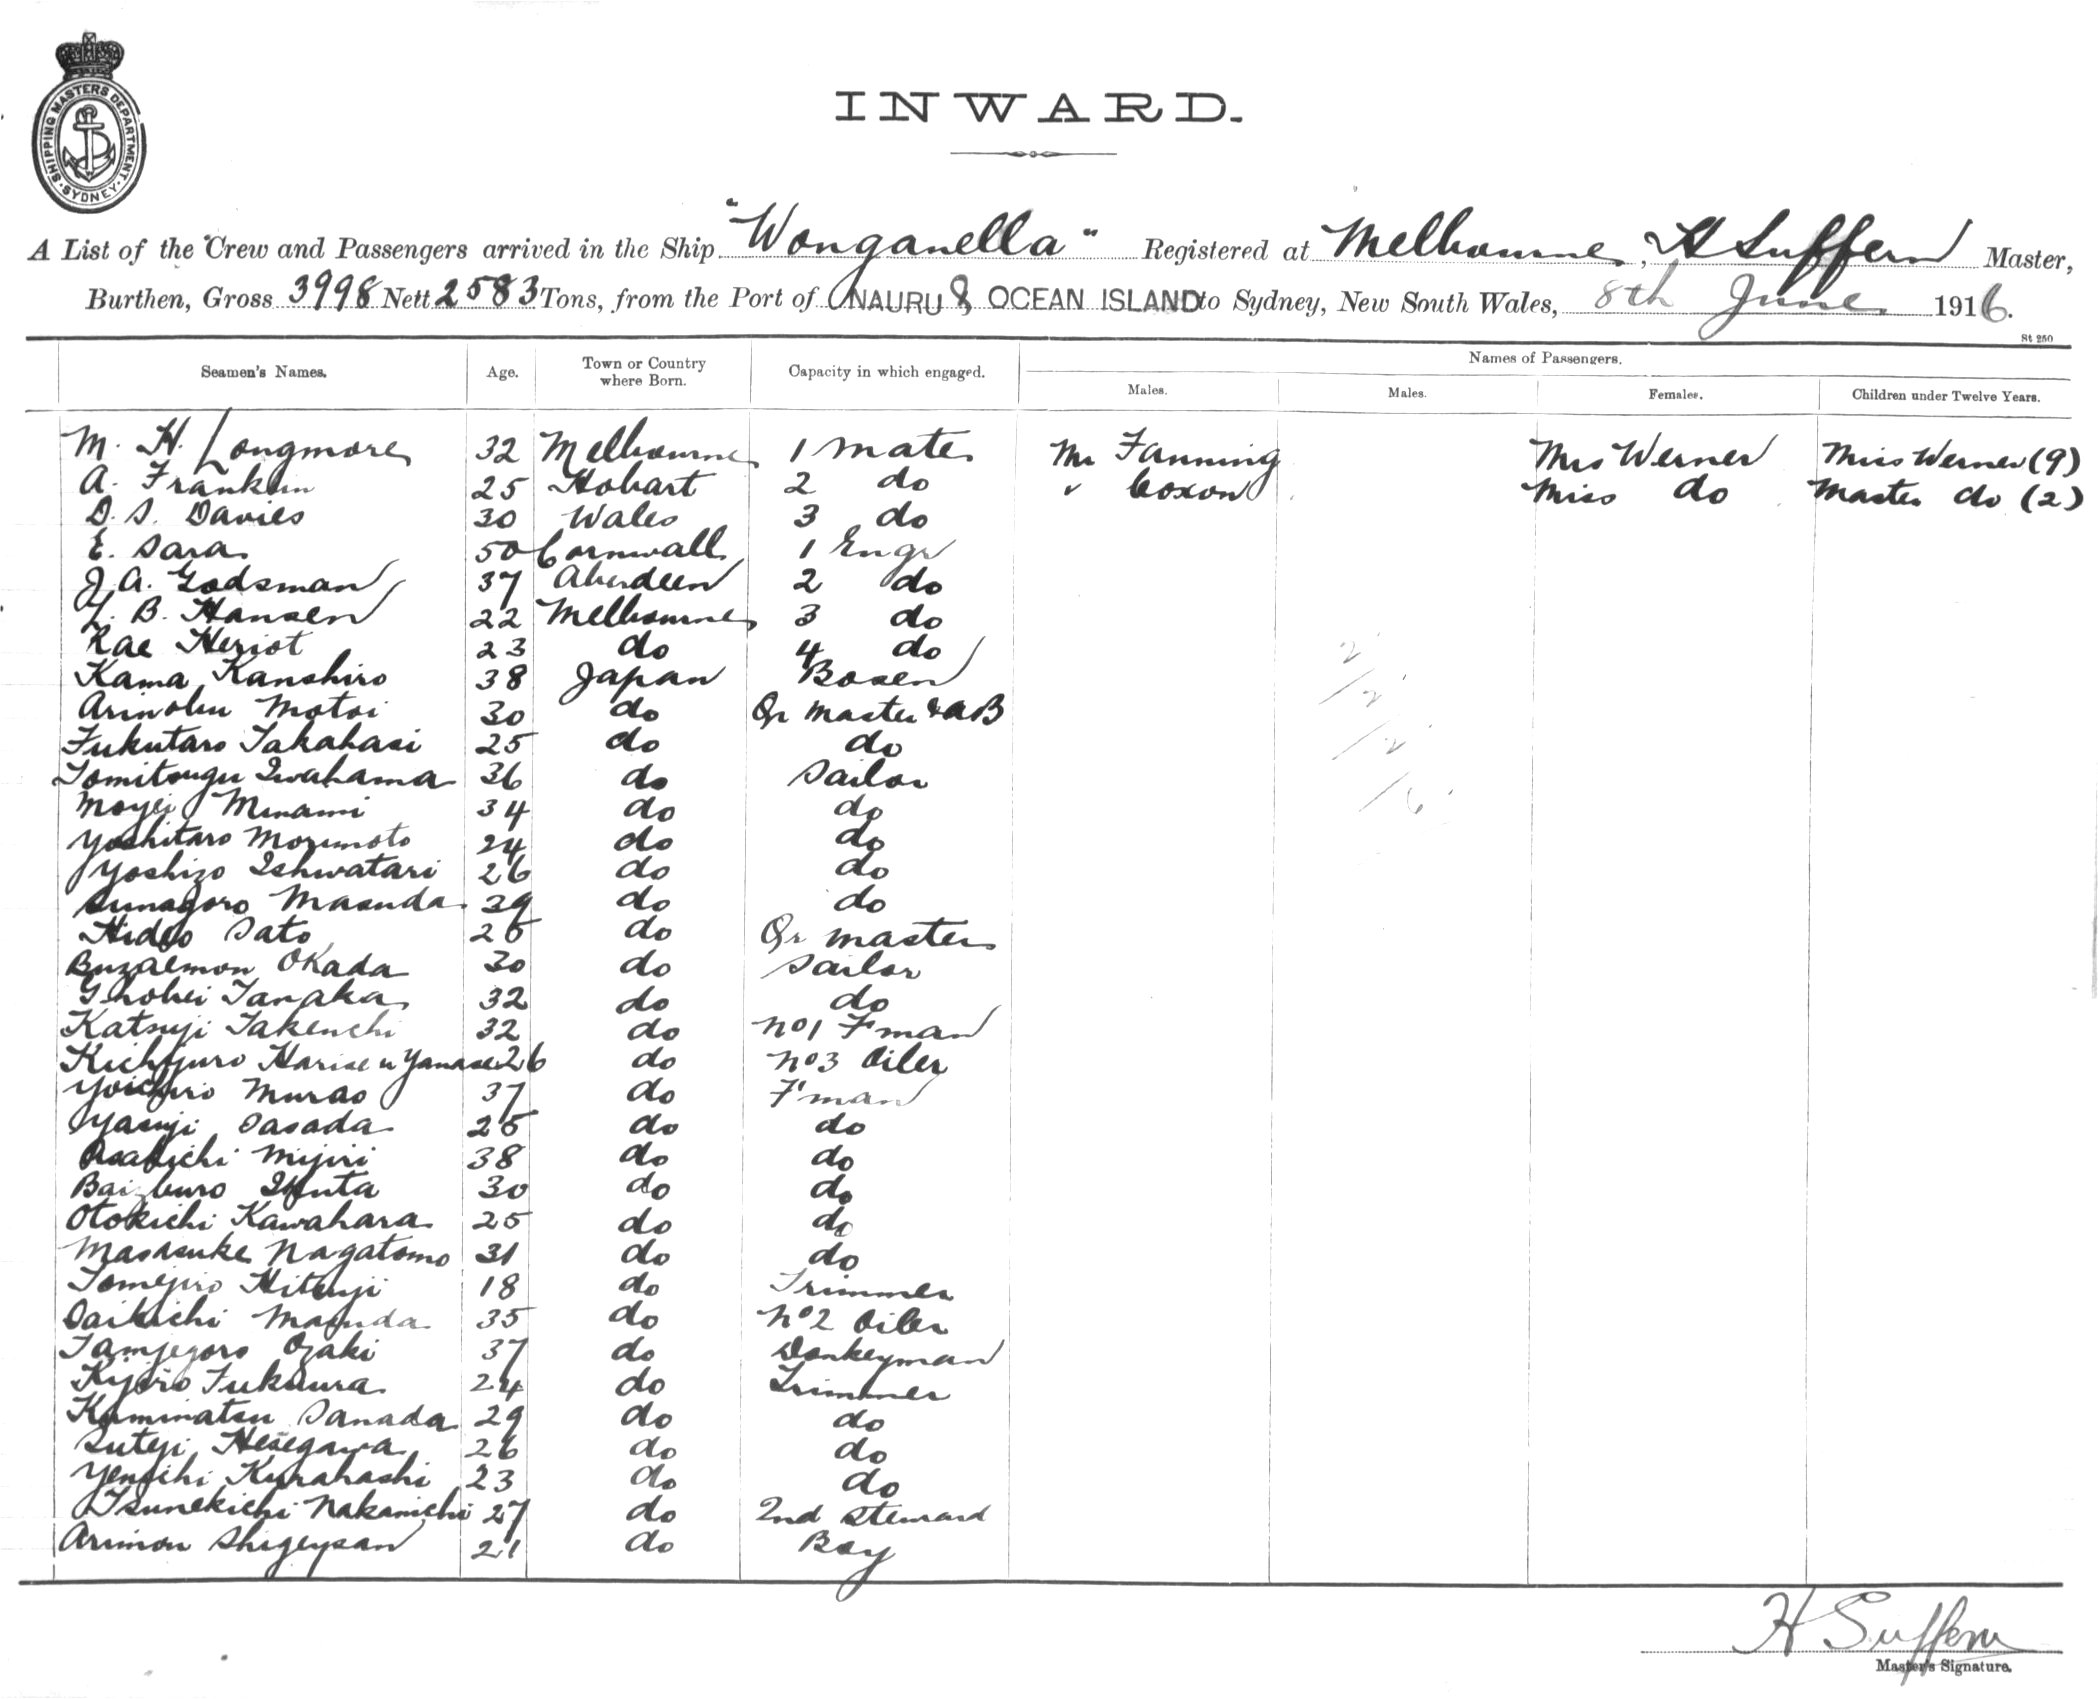 SHIPPING MASTERS DEPARTMENT. SYDNEY.
INWARD.
A List of the Crew and Passengers arrived in the Ship "Wonganella" Registered at Melbourne, H Suffern Master,
Burthen, Gross 3998 Nett 2583 Tons, from the Port of NAURU & OCEAN ISLAND to Sydney, New South Wales, 8th June 1916.
St 250
Seamen's Names. Age. Town or Country where Born. Capacity in which engaged. Names of Passengers.
Males. Males. Females. Children under Twelve Years.
M. H. Longmore 32 Melbourne 1 mate Mr Fanning Mrs Werner Miss Werner (9)
A. Franklin 25 Hobart 2 do " Coxon Miss do Master do (2)
D. S. Davies 30 Wales 3 do
E. Sara 50 Cornwall 1 Engr
J. A. Godsman 37 Aberdeen 2 do
B. Hansen 22 Melbourne 3 do
Rae Heriot 23 do 4 do
Kama Kanshiro 38 Japan Bosen
Arinobu Motoi 30 do Qr Master & AB
Fukutaro Takahasi 25 do do
Tomitsugu Iwahama 36 do Sailor
Moyei Minami 34 do do
Yoshitaro Morimoto 24 do do
Yoshizo Ishwatari 26 do do
Sunagoro Masuda 39 do do
Hideo Sato 25 do Qr Master
Buzaemon Okada 30 do Sailor
Tanaka 32 do do
Katsuji Takeuchi 32 do No1 F'man
Kichijuro Harise u Yanase 26 do No3 Oiler
Yoichiro Murao 37 do F'man
Yasuji Sasada 25 do do
Asakichi Mijiri 38 do do
Ikuta 30 do do
Otokichi Kawahara 25 do do
Masasuke Nagatomo 31 do do
Tomejiro Hitsuji 18 do Trimmer
Daikichi Masuda 35 do No2 Oiler
Ozaki 37 do Donkeyman
Kijiro Fukuura 24 do Trimmer
Kuminatsu Sanada 29 do do
Suteji Hesegawa 26 do do
Yenichi Kurahashi 23 do do
Tsunekichi Nakamichi 27 do 2nd Steward
Arimon Shigeysan 21 do Boy
H Suffern
Master's Signature.